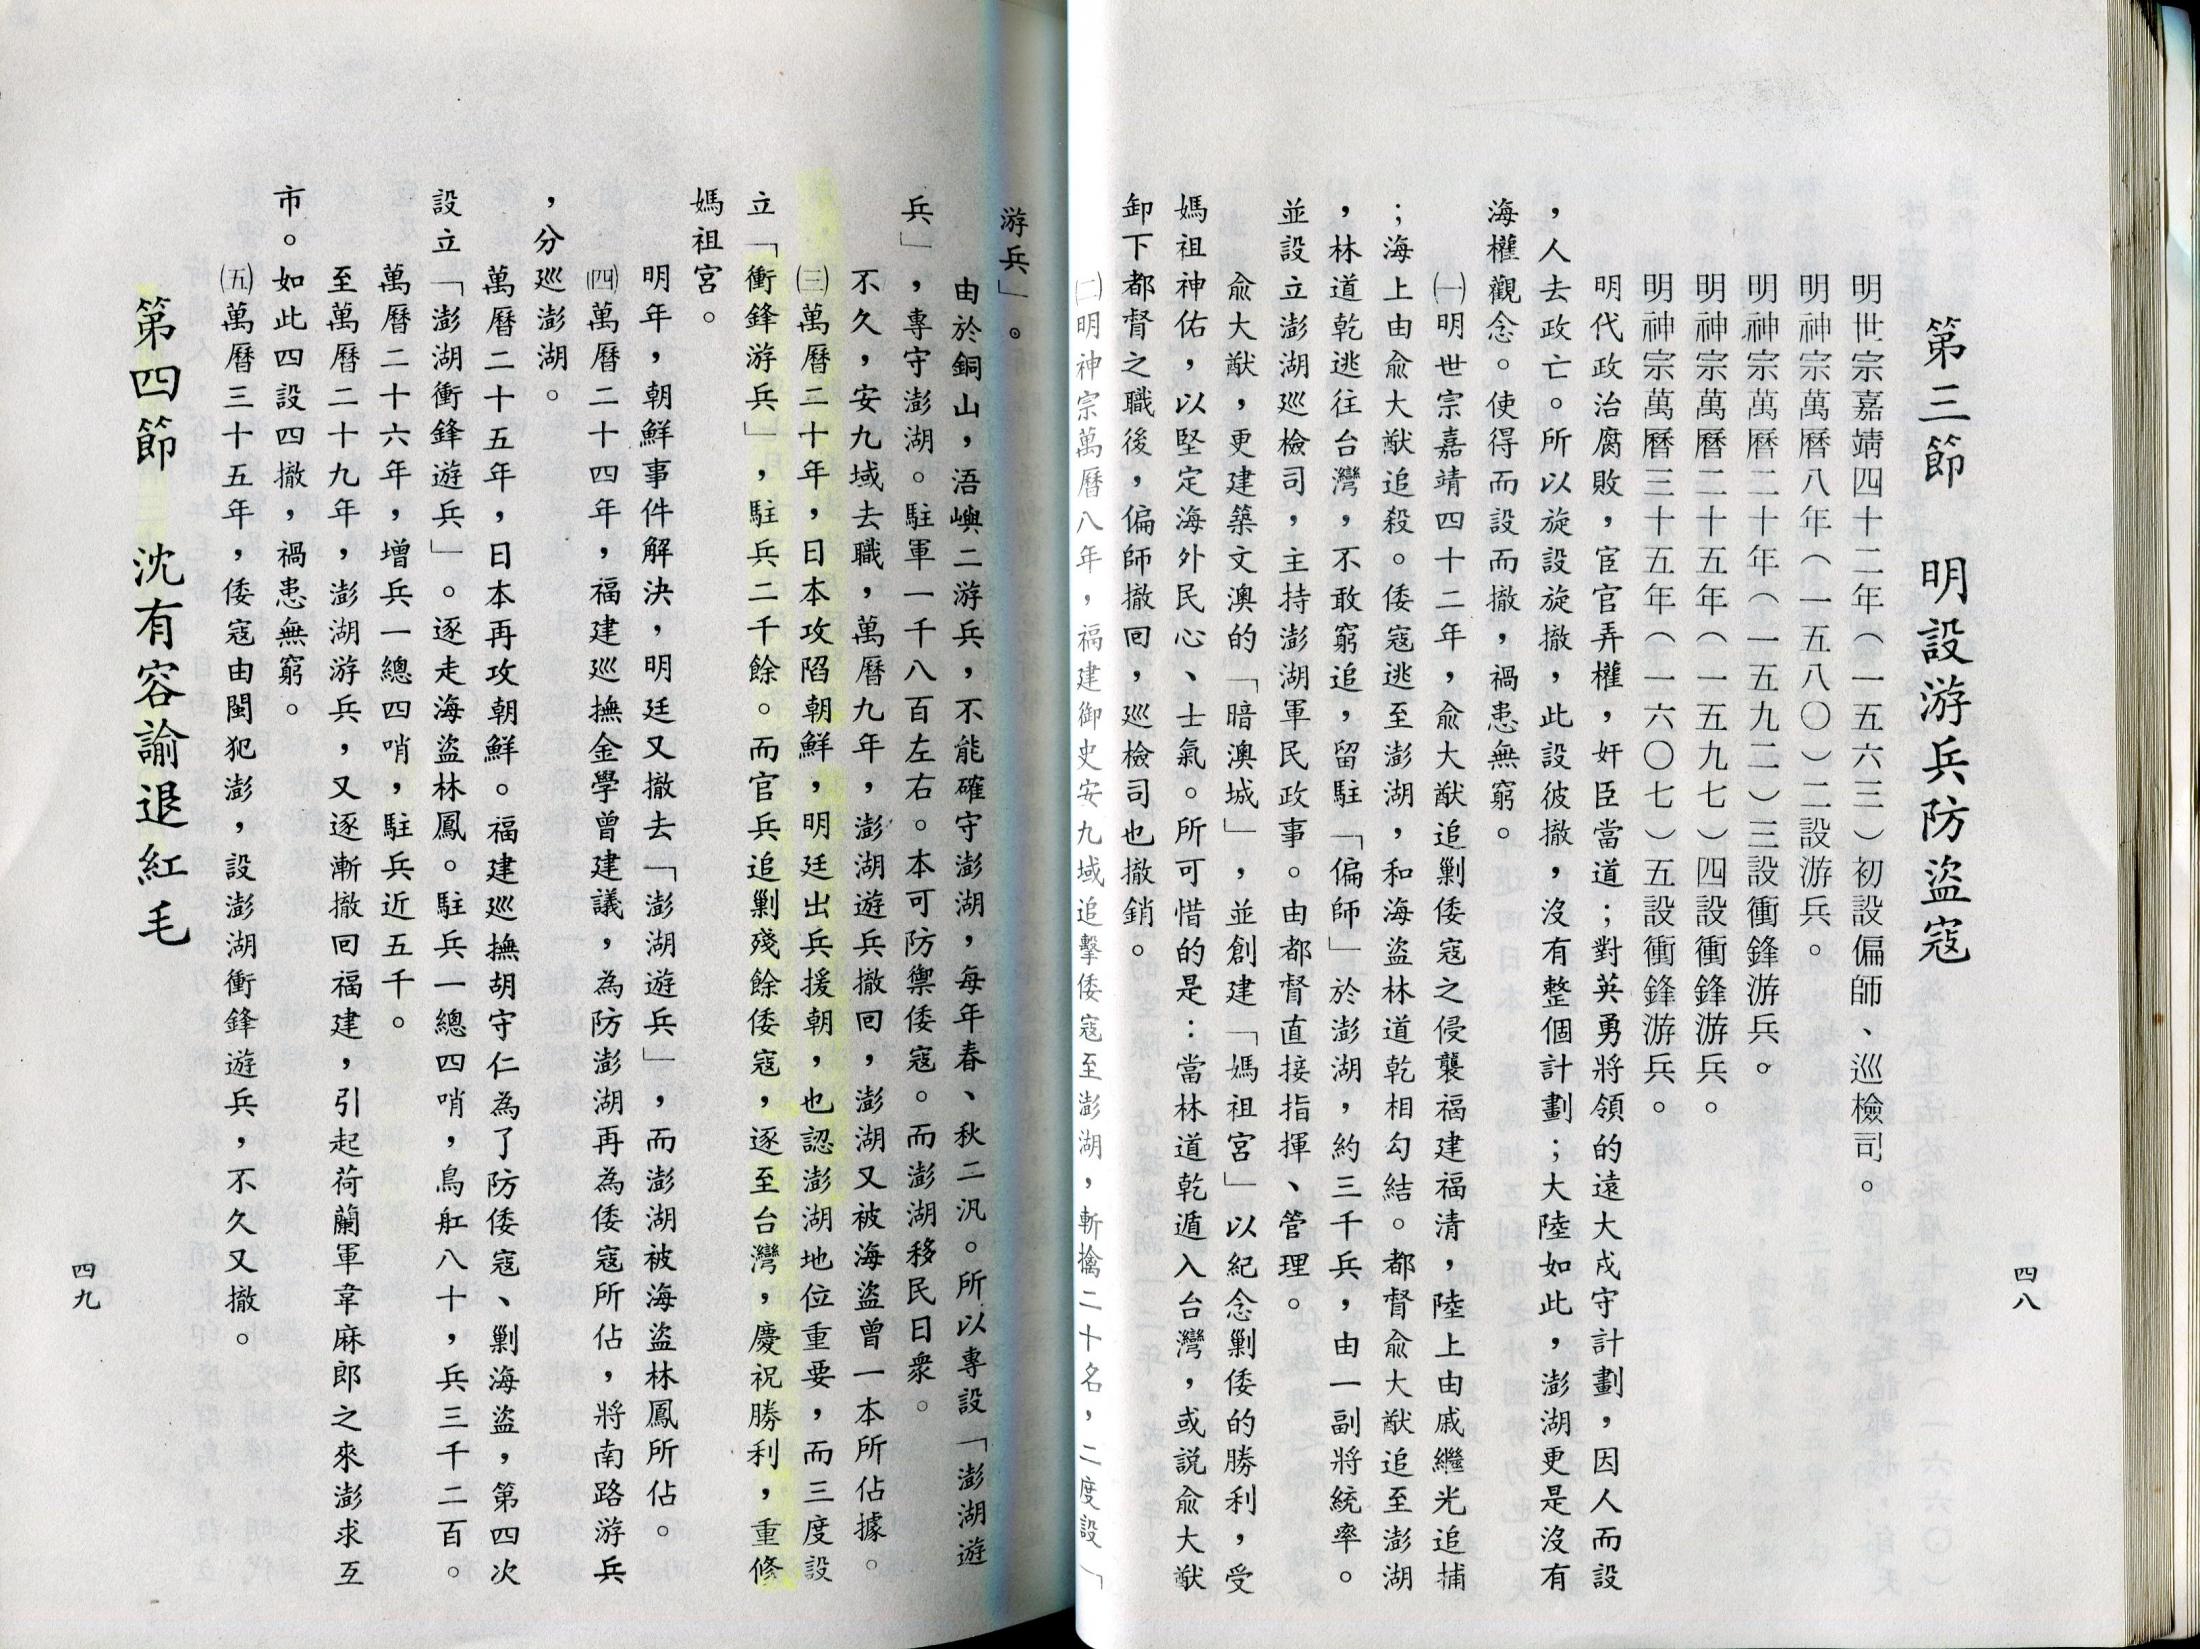 第三節　明設游兵防盜寇
明世宗嘉靖四十二年（一五六三）初設偏師、巡檢司。
明神宗萬曆八年（一五八〇）二設游兵。
明神宗萬曆二十年（一五九二）三設衝鋒游兵。
明神宗萬曆二十五年（一五九七）四設衝鋒游兵。
明神宗萬曆三十五年（一六〇七）五設衝鋒游兵。
明代政治腐敗，宦官弄權，奸臣當道；對英勇將領的遠大戍守計劃，因人而設
，人去政亡。所以旋設旋撤，此設彼撤，沒有整個計劃；大陸如此，澎湖更是沒有
海權觀念。使得而設而撤，禍患無窮。
㈠明世宗嘉靖四十二年，俞大猷追剿倭寇之侵襲福建福清，陸上由戚繼光追捕
；海上由俞大猷追殺。倭寇逃至澎湖，和海盜林道乾相勾結。都督俞大猷追至澎湖
，林道乾逃往台灣，不敢窮追，留駐「偏師」於澎湖，約三千兵，由一副將統率。
並設立澎湖巡檢司，主持澎湖軍民政事。由都督直接指揮、管理。
俞大猷，更建築文澳的「暗澳城」，並創建「媽祖宮」以紀念剿倭的勝利，受
媽祖神佑，以堅定海外民心、士氣。所可惜的是：當林道乾遁入台灣，或說俞大猷
卸下都督之職後，偏師撤回，巡檢司也撤銷。
㈡明神宗萬曆八年，福建御史安九域追擊倭寇至澎湖，斬擒二十名，二度設「
四八
游兵」。
由於銅山，浯嶼二游兵，不能確守澎湖，每年春、秋二汛。所以專設「澎湖遊
兵」，專守澎湖。駐軍一千八百左右。本可防禦倭寇。而澎湖移民日眾。
不久，安九域去職，萬曆九年，澎湖遊兵撤回，澎湖又被海盜曾一本所佔據。
㈢萬曆二十年，日本攻陷朝鮮，明廷出兵援朝，也認澎湖地位重要，而三度設
立「衝鋒游兵」，駐兵二千餘。而官兵追剿殘餘倭寇，逐至台灣，慶祝勝利，重修
媽祖宮。
明年，朝鮮事件解決，明廷又撤去「澎湖遊兵」，而澎湖被海盜林鳳所佔。
㈣萬曆二十四年，福建巡撫金學曾建議，為防澎湖再為倭寇所佔，將南路游兵
，分巡澎湖。
萬曆二十五年，日本再攻朝鮮。福建巡撫胡守仁為了防倭寇、剿海盜，第四次
設立「澎湖衝鋒遊兵」。逐走海盜林鳳。駐兵一總四哨，鳥舡八十，兵三千二百。
萬曆二十六年，增兵一總四哨，駐兵近五千。
至萬曆二十九年，澎湖游兵，又逐漸撤回福建，引起荷蘭軍韋麻郎之來澎求互
市。如此四設四撤，禍患無窮。
㈤萬曆三十五年，倭寇由閩犯澎，設澎湖衝鋒遊兵，不久又撤。
第四節　沈有容諭退紅毛
四九